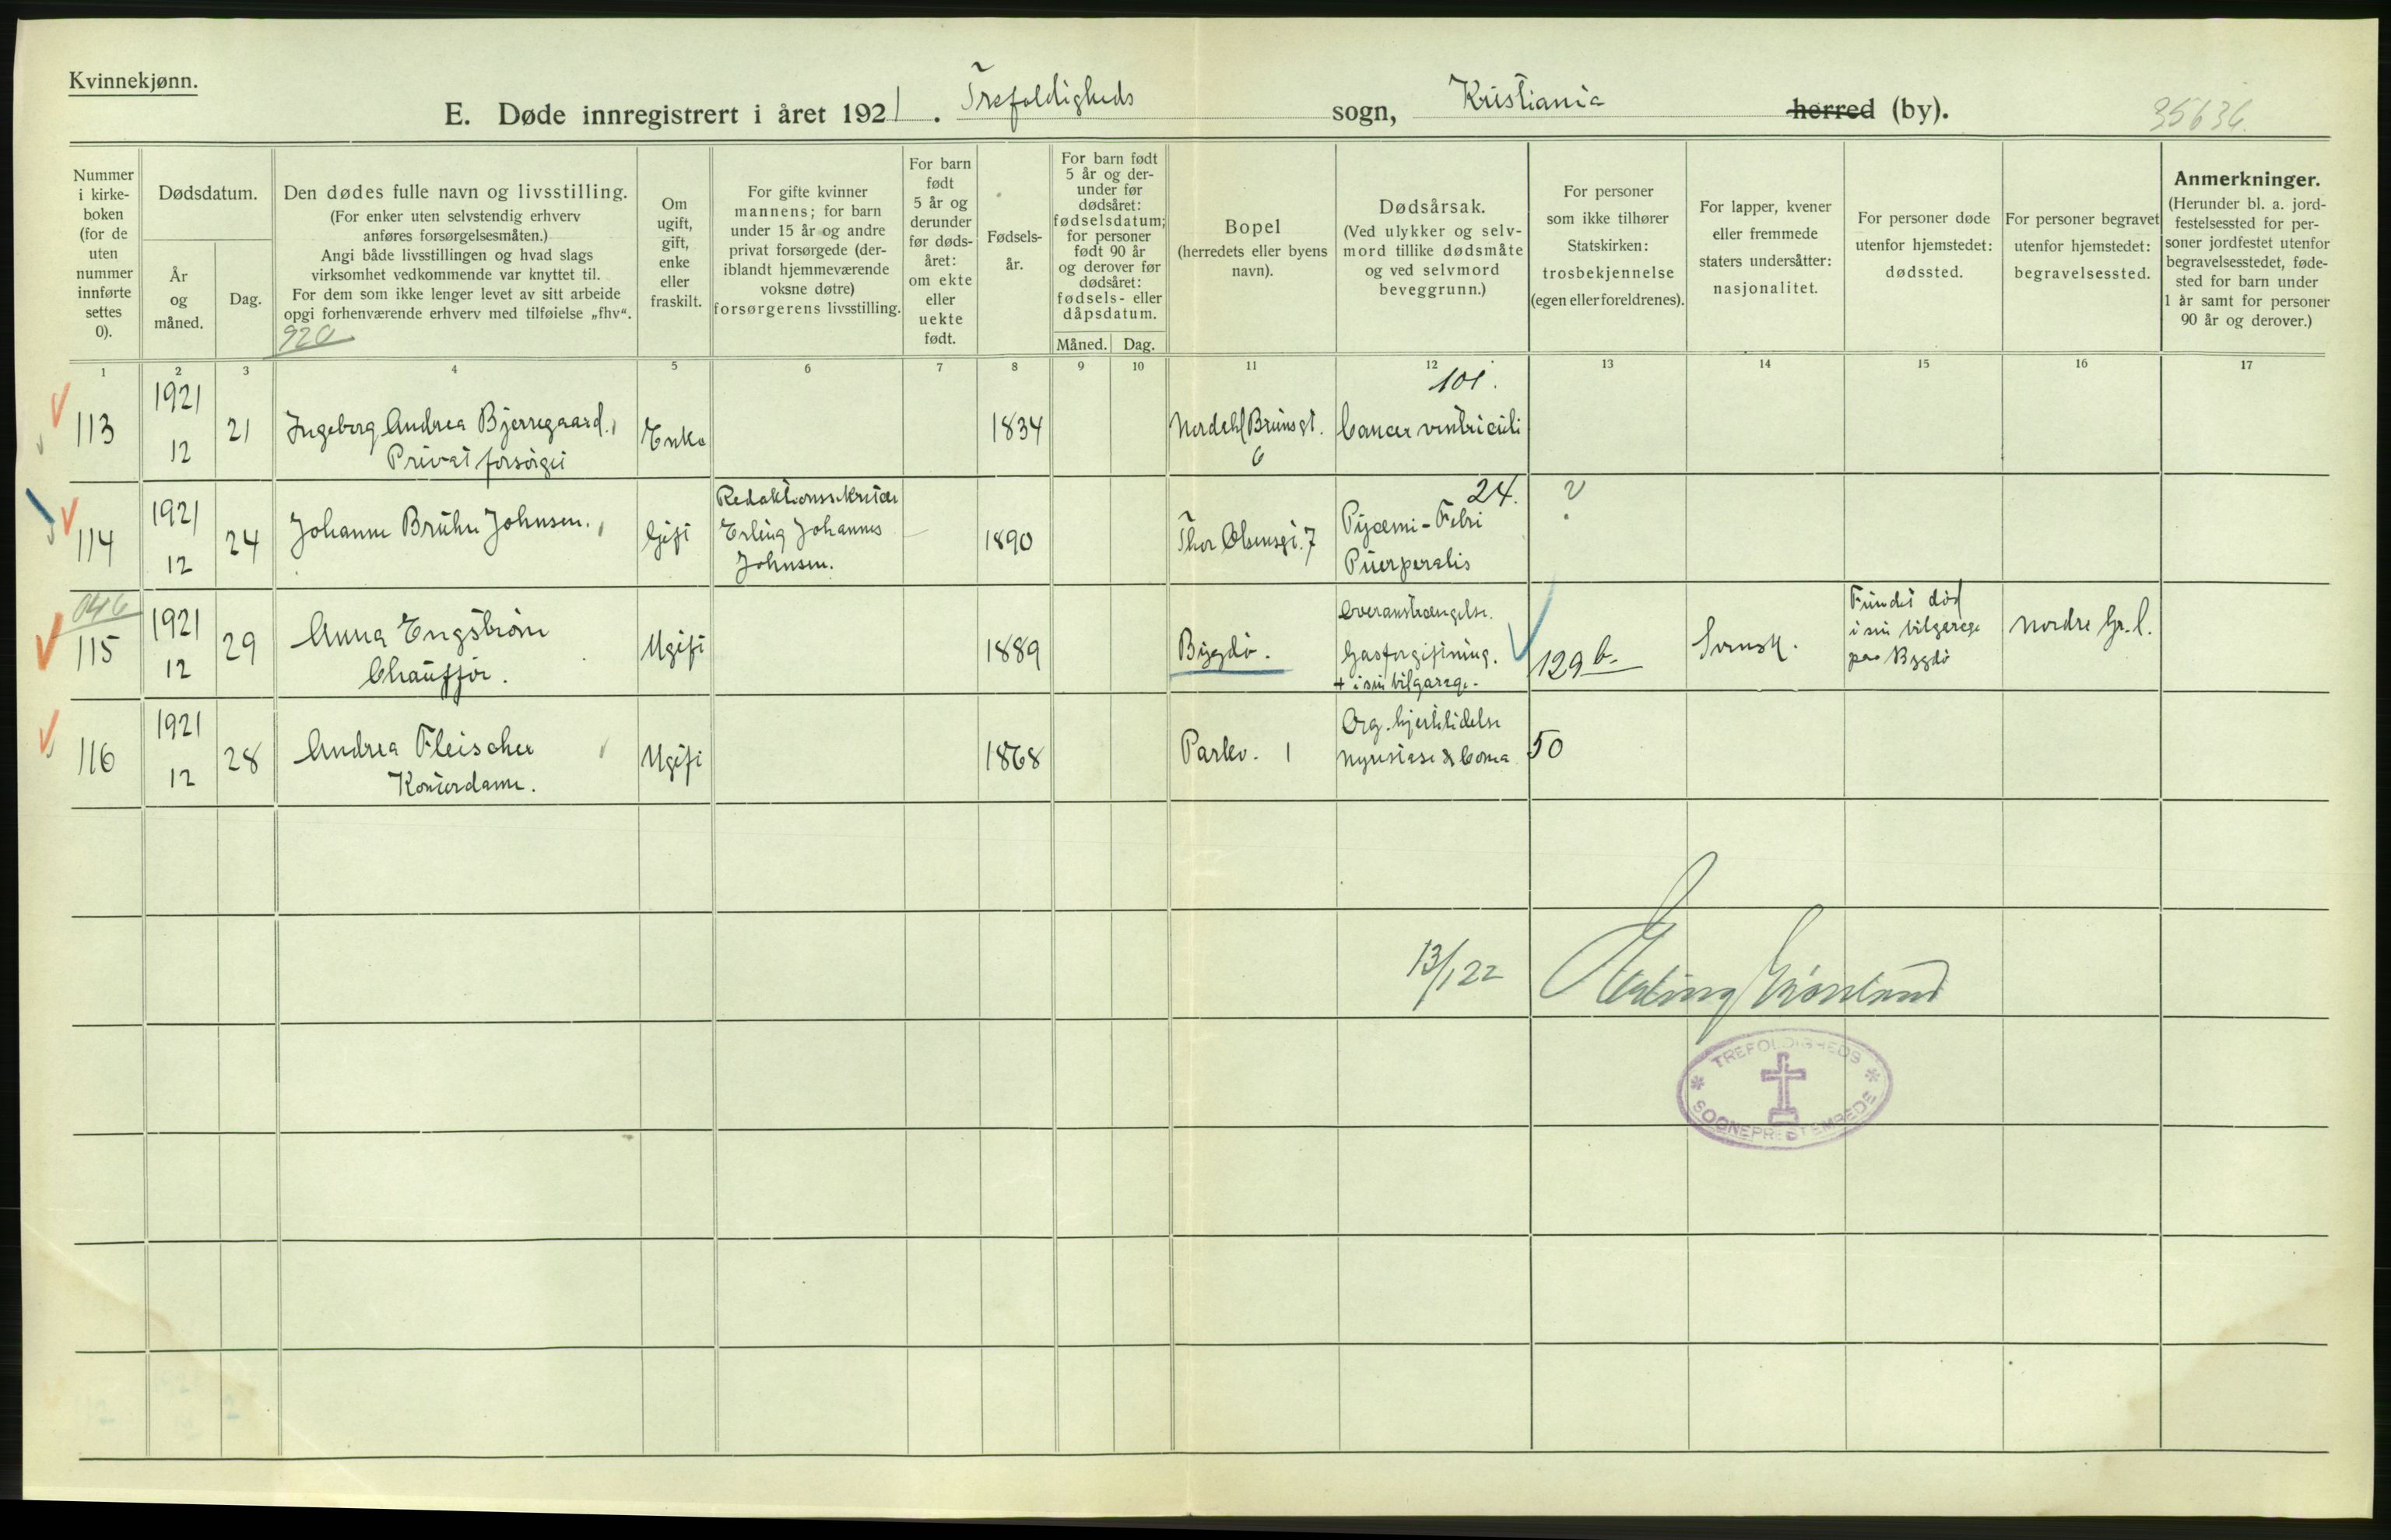 Kvinnekjønn.
E. Døde innregistrert i året 1921. Trefoldigheds sogn, Kristiania herred (by).
35636.
Nummer i kirke-
boken
(for de
uten
nummer
innførte
settes
0).
Dødsdatum.
År
og
måned.
Dag.
Den dødes fulle navn og livsstilling.
(For enker uten selvstendig erhverv
anføres forsørgelsesmåten.)
Angi både livsstillingen og hvad slags
virksomhet vedkommende var knyttet til.
For dem som ikke lenger levet av sitt arbeide
opgi forhenværende erhverv med tilføielse „fhv“.
920
Om
ugift,
gift,
enke
eller
fraskilt.
For gifte kvinner
mannens; for barn
under 15 år og andre
privat forsørgede (der-
iblandt hjemmeværende
voksne døtre)
forsørgerens livsstilling.
For barn
født
5 år og
derunder
før døds-
året:
om ekte
eller
uekte
født.
Fødsels-
år.
For barn født
5 år og der-
under før
dødsåret:
fødselsdatum;
for personer
født 90 år
og derover før
dødsåret:
fødsels- eller
dåpsdatum.
Måned. Dag.
Bopel
(herredets eller byens
navn).
Dødsårsak.
(Ved ulykker og selv-
mord tillike dødsmåte
og ved selvmord
beveggrunn.)
For personer
som ikke tilhører
Statskirken:
trosbekjennelse
(egen eller foreldrenes).
For lapper, kvener
eller fremmede
staters undersåtter:
nasjonalitet.
For personer døde
utenfor hjemstedet:
dødssted.
For personer begravet
utenfor hjemstedet:
begravelsessted.
Anmerkninger.
(Herunder bl. a. jord-
festelsessted for per-
soner jordfestet utenfor
begravelsesstedet, føde-
sted for barn under
1 år samt for personer
90 år og derover.)
1 2 3 4 5 6 7 8 9 10 11 12 13 14 15 16 17
113
1921
12
21
Ingeborg Andrea Bjerregaard.,
Privat forsørget
Enke
1834
Nordahl Brunsgt.
6
101.
Cancer ventriculi
114
1921
12
24
Johanne Bruhn Johnsen.,
Gift
Redaktionssekretær
Erling Johannes
Johnsen.
1890
Thor Olsensgt. 7
24.
Pyæmi - Febri
Puerperalis
?
046
115
1921
12
29
Anna Engström
Chauffør.
Ugift
1889
Bygdø.
Overanstrængelse.
Gasforgiftning.
+ i sin bilgarage.
129 b.
Svensk.
Fundet død
i sin bilgarage
paa Bygdø
Nordre Gr. l.
116
1921
12
28
Andrea Fleischer
Kontordame.
Ugift
1868
Parkv. 1
Org. hjertelidelse
Nyrestase & Coma
50
13/1 22
Erling Grønland
TREFOLDIGHEDS
SOGNEPRESTEMBEDE